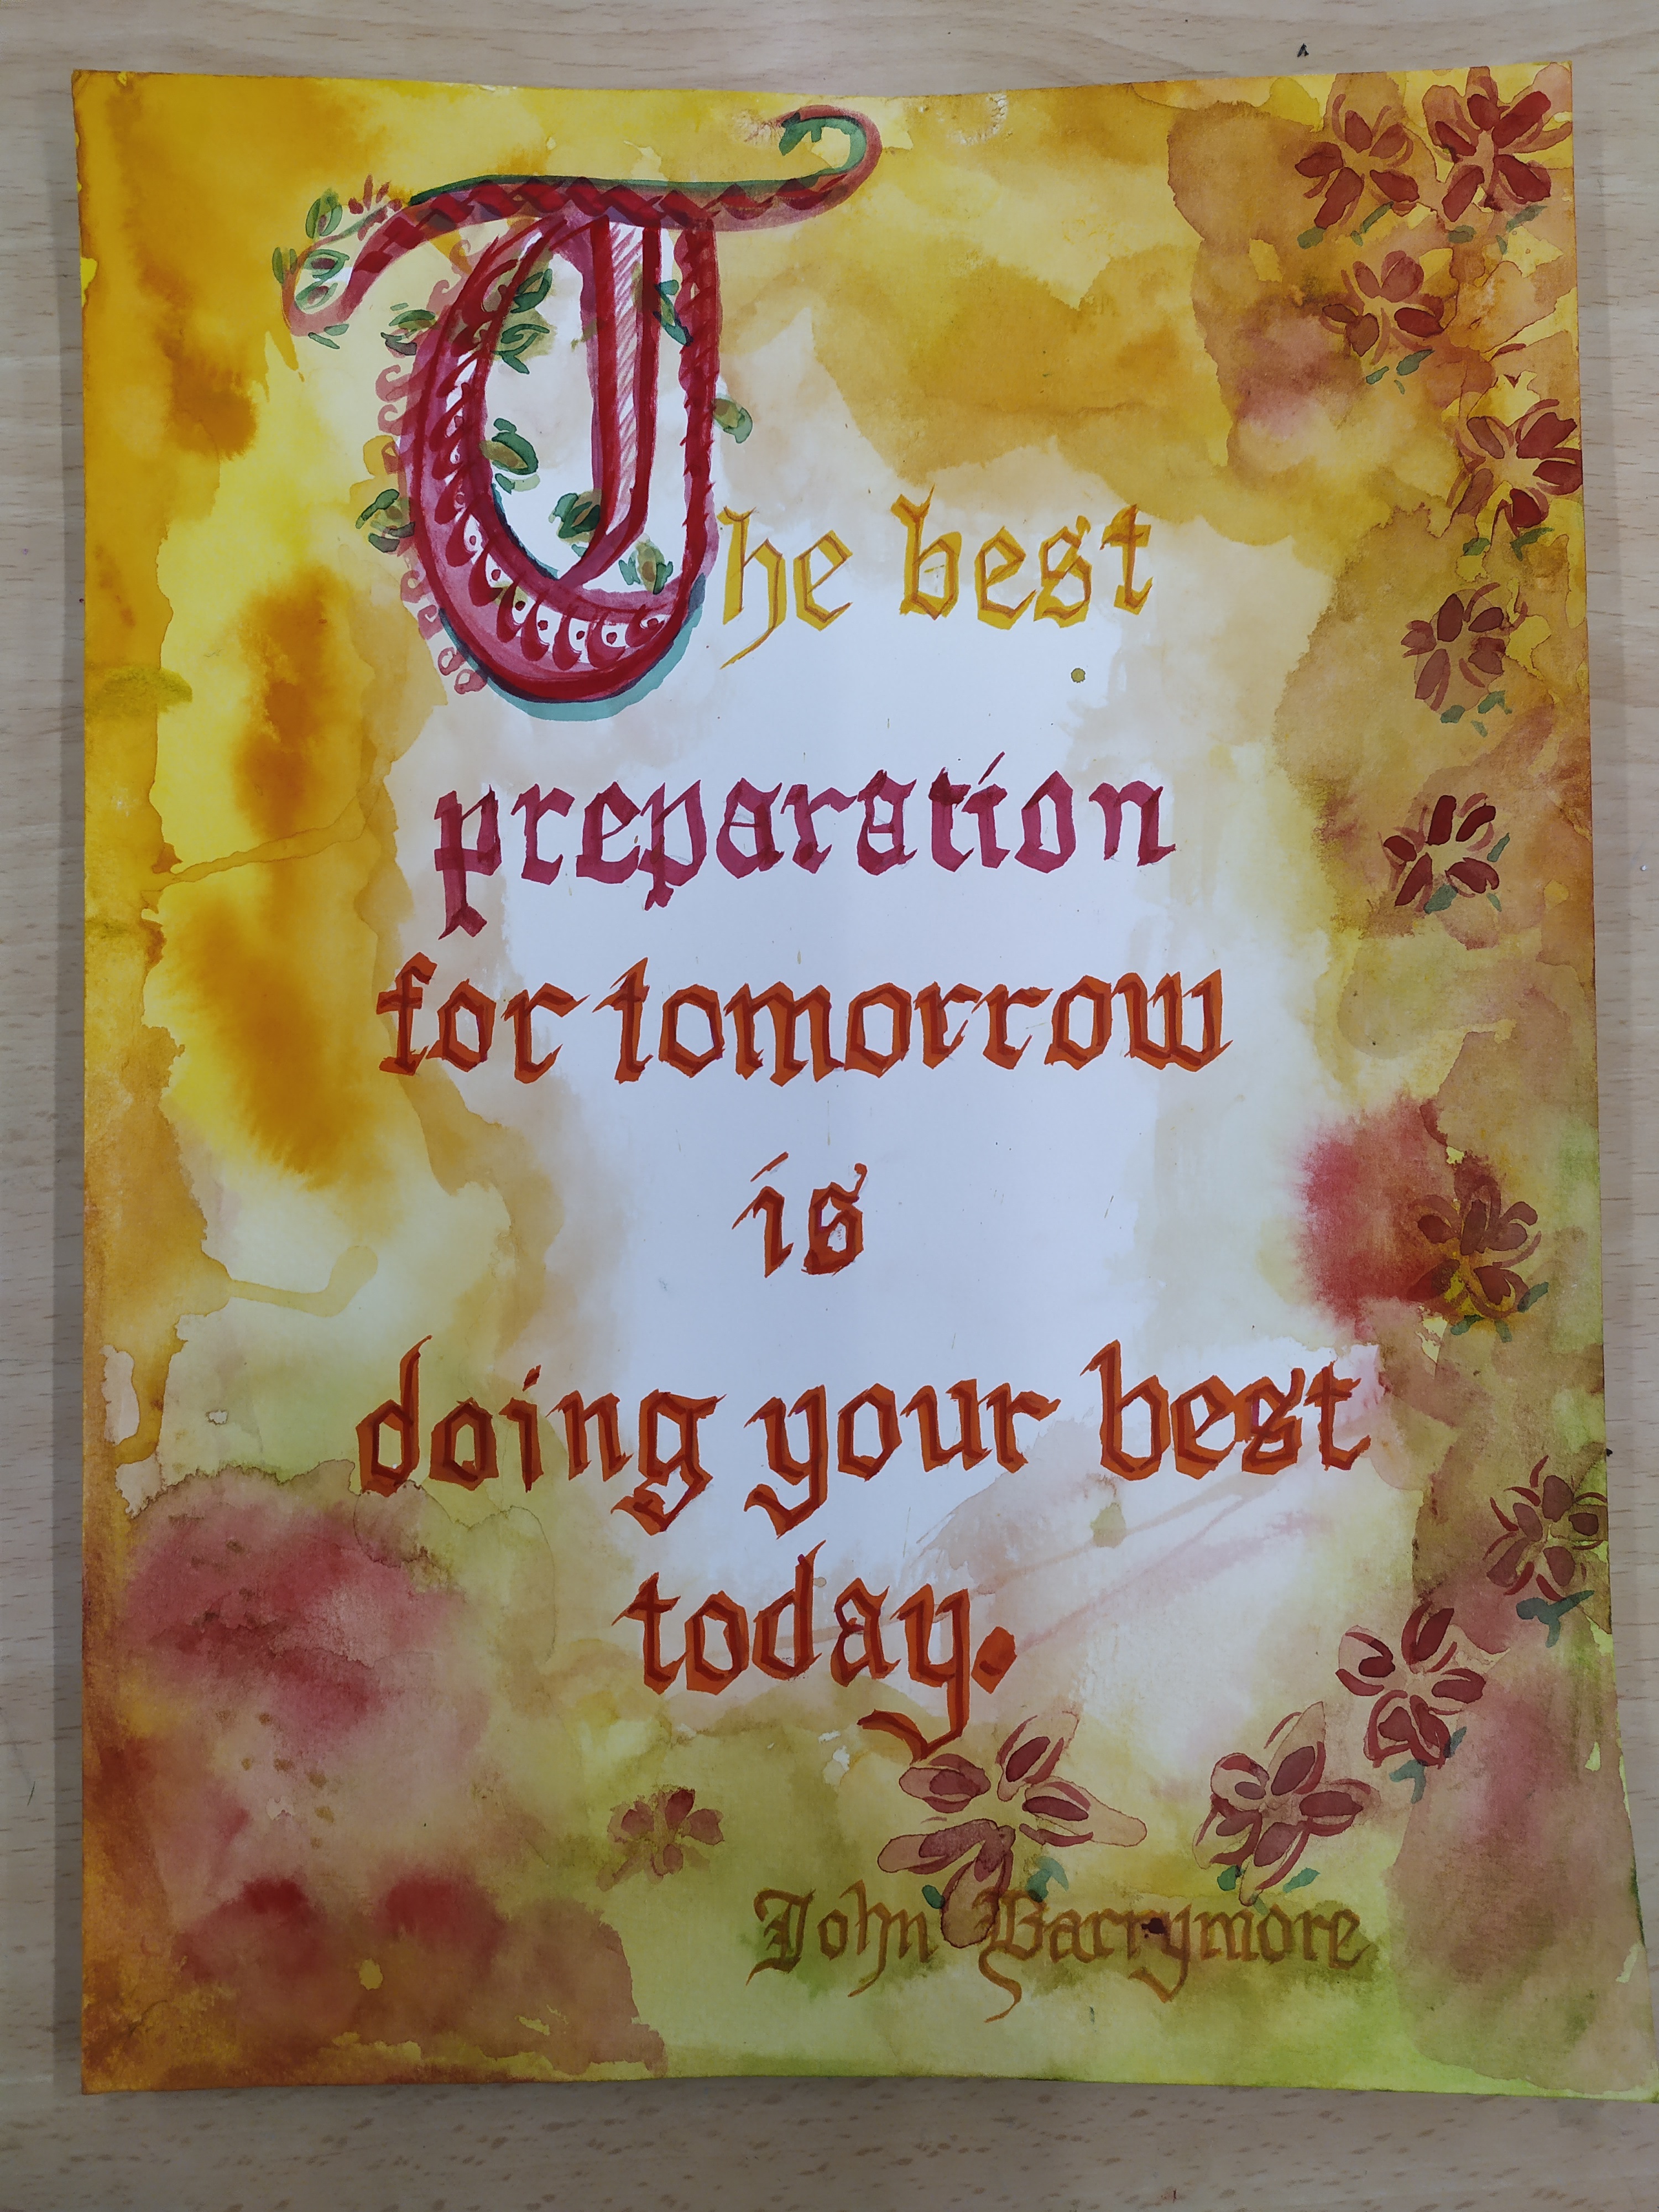 The best
preparation
for tomorrow
is
doing your best
today.
John Barrymore